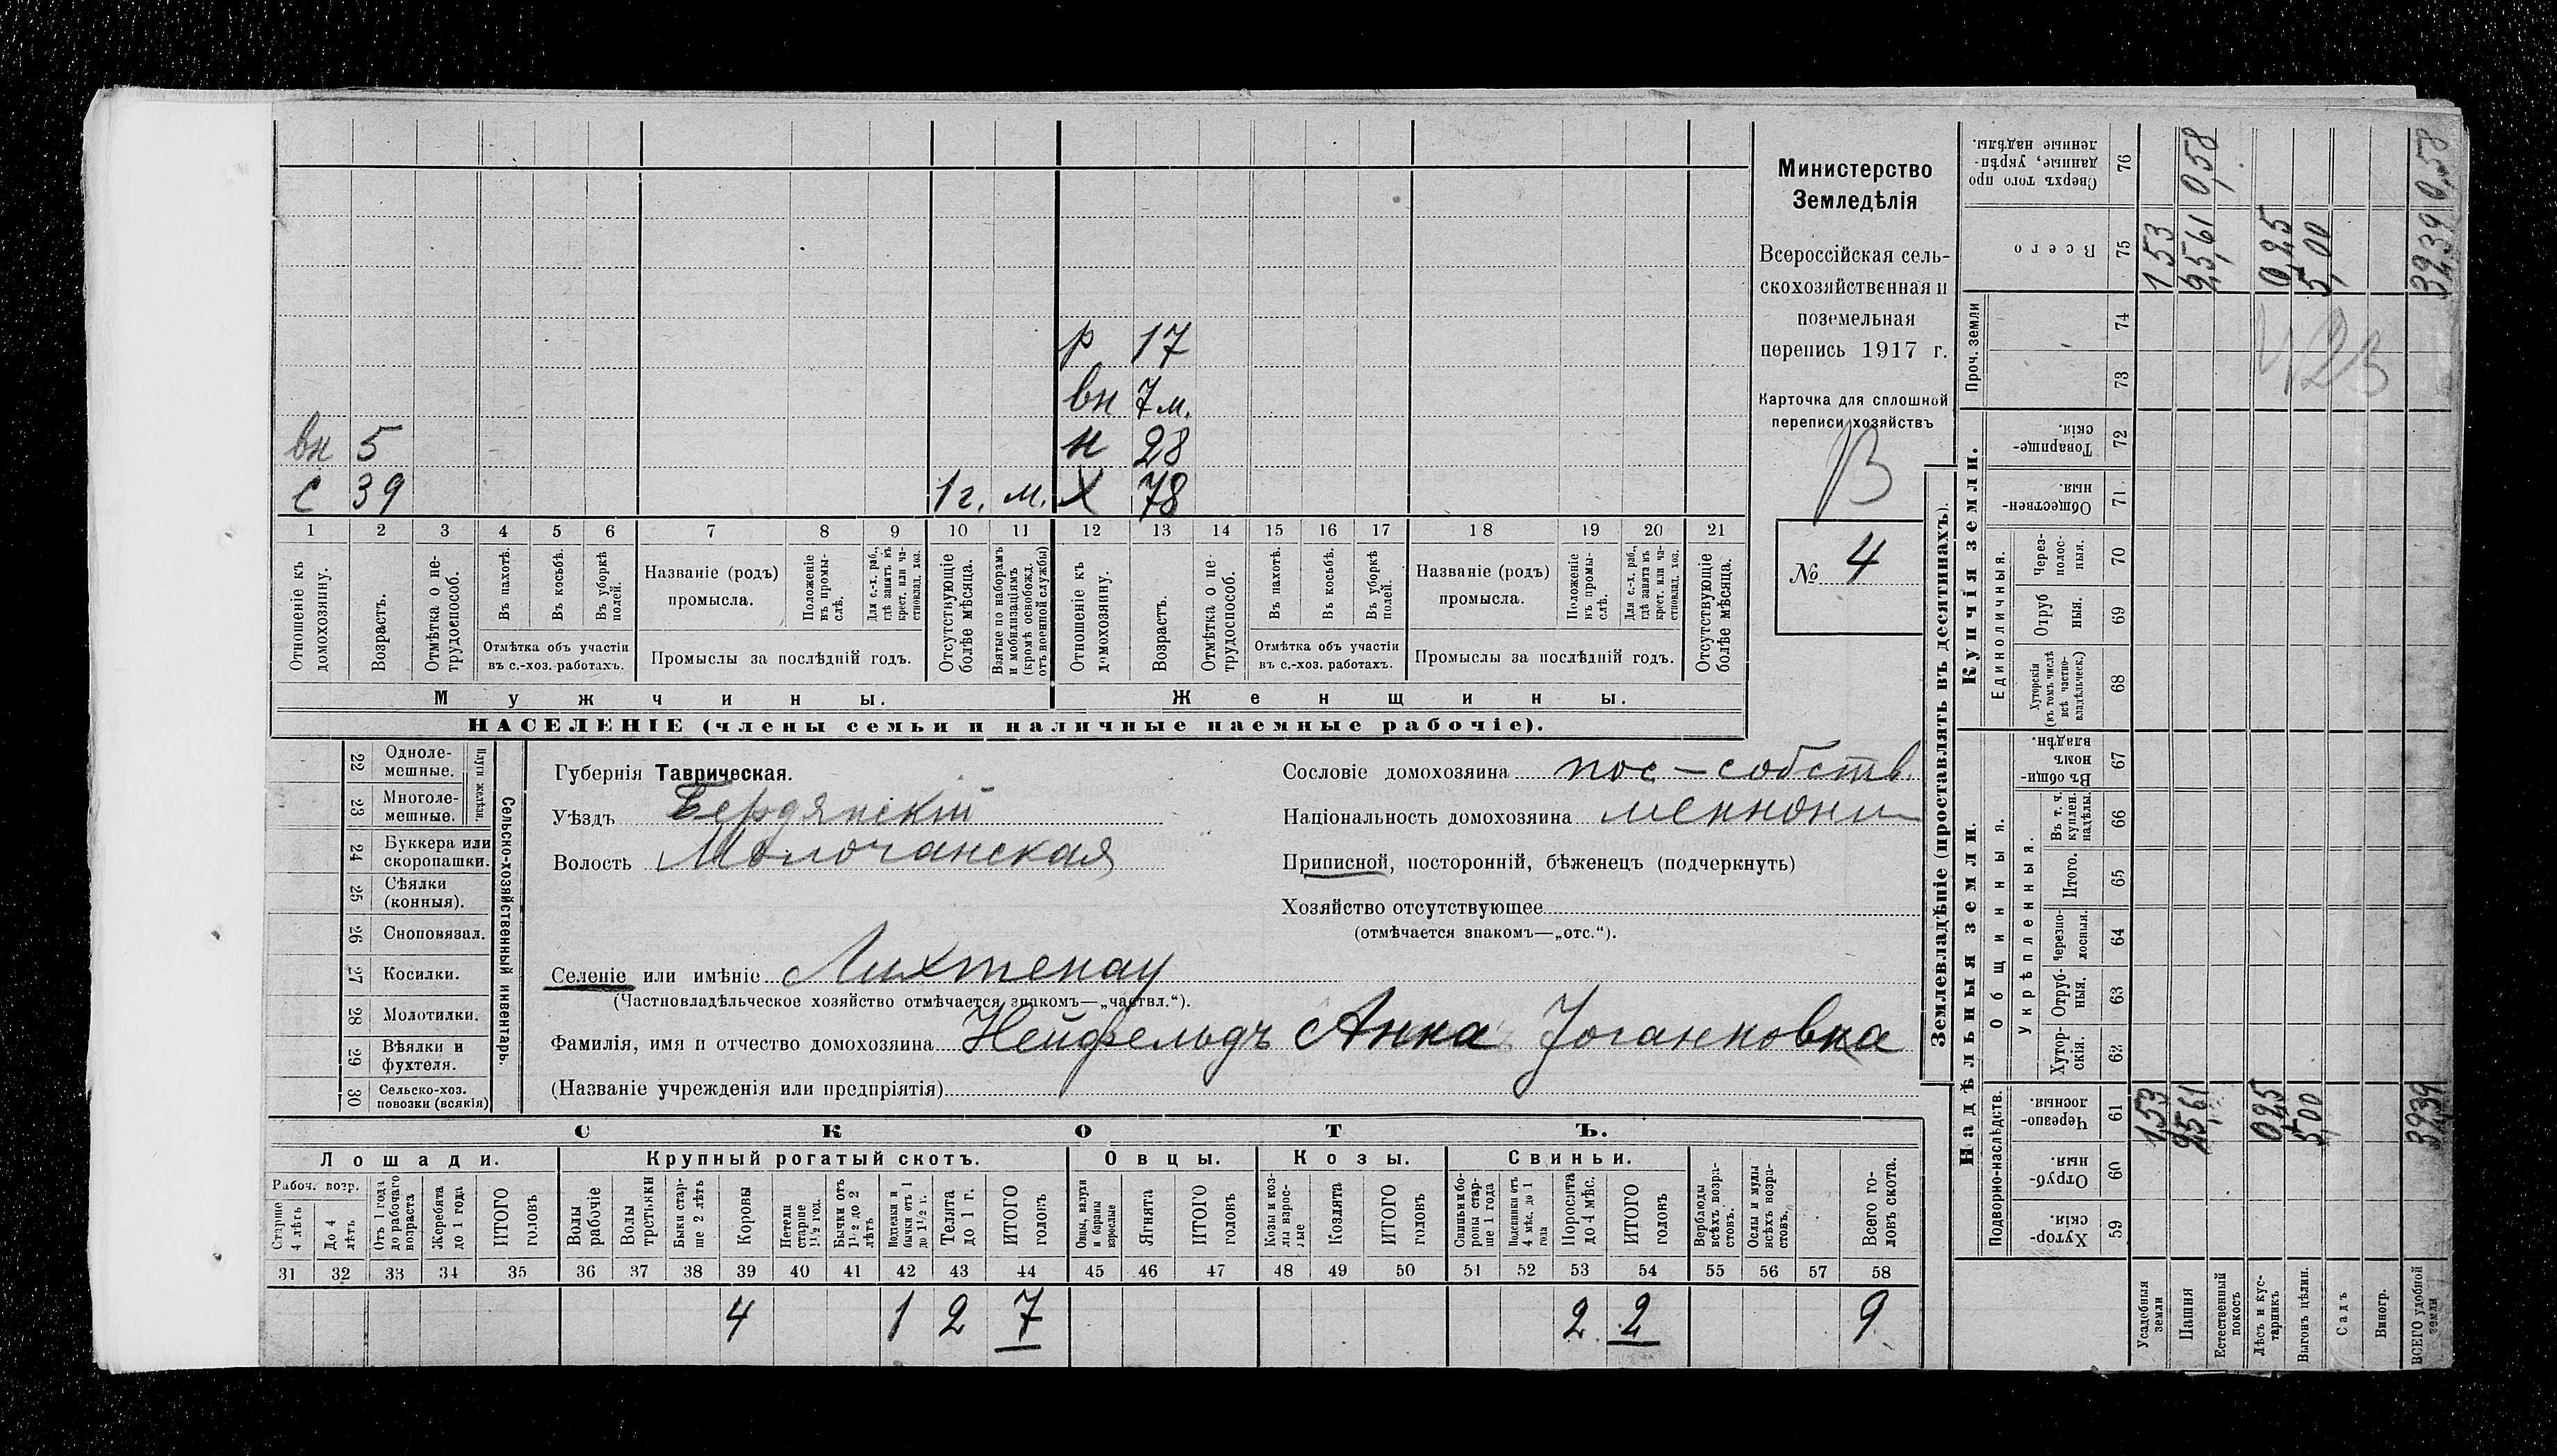 р 17
вн 7 м.
вн 5
н 28
с 39 1 г. м. х 78
1 2 3 4 5 6 7 8 9 10 11 12 13 14 15 16 17 18 19 20 21
Отношеніе къ домохозяину.
Возрастъ.
Отмѣтка о не-трудоспособ.
Въ пахотѣ.
Въ косьбѣ.
Въ уборкѣ полей.
Отмѣтка объ участіи
въ с.-хоз. работахъ.
Названіе (родъ)
промысла.
Положеніе въ промы-слѣ.
Для с.-х. раб., гдѣ занятъ въ крест. или ча-стновлад. хоз.
Промыслы за послѣдній годъ.
Отсутствующіе болѣе мѣсяца.
Взятые по наборамъ и мобилизаціямъ (кромѣ освобожд. отъ военной службы)
Отношеніе къ домохозяину.
Возрастъ.
Отмѣтка о не-трудоспособ.
Въ пахотѣ.
Въ косьбѣ.
Въ уборкѣ полей.
Отмѣтка объ участіи
въ с.-хоз. работахъ.
Названіе (родъ)
промысла.
Положеніе въ промы-слѣ.
Для с.-х. раб., гдѣ занята въ крест. или ча-стновлад. хоз.
Промыслы за послѣдній годъ.
Отсутствующіе болѣе мѣсяца.
Мужчины. Женщины.
НАСЕЛЕНІЕ (члены семьи и наличные наемные рабочіе).
Министерство
Земледѣлія
Всероссійская сель-
скохозяйственная и
поземельная
перепись 1917 г.
Карточка для сплошной
переписи хозяйствъ
В
№ 4
Сельско-хозяйственный инвентарь.
Плуги желѣзн.
22 Одноле-мешные.
23 Многоле-мешные.
24 Буккера или скоропашки.
25 Сѣялки (конныя).
26 Сноповязал.
27 Косилки.
28 Молотилки.
29 Вѣялки и фухтеля.
30 Сельско-хоз. повозки (всякія)
Губернія Таврическая.
Уѣздъ Бердянскій
Волость Молочанская
Сословіе домохозяина пос-собств.
Національность домохозяина меннони
Приписной, посторонній, бѣженецъ (подчеркнуть)
Хозяйство отсутствующее
(отмѣчается знакомъ—„отс.“).
Селеніе или имѣніе Лихтенау
(Частновладѣльческое хозяйство отмѣчается знакомъ—„частвл.“).
Фамилія, имя и отчество домохозяина Нейфельдъ Анна Іоганновна
(Названіе учрежденія или предпріятія)
СКОТЪ.
Лошади. Крупный рогатый скотъ. Овцы. Козы. Свиньи.
Рабоч. возр.
Старше 4 лѣтъ
До 4 лѣтъ
Отъ 1 года до рабочаго возраста
Жеребята до 1 года
ИТОГО головъ
Волы рабочіе
Волы третьяки
Быки стар-ше 2 лѣтъ
Коровы
Нетели старше 1½ год.
Бычки отъ 1½ до 2 лѣтъ
Телки и бычки отъ 1 до 1½ г.
Телята до 1 г.
ИТОГО головъ
Овцы, валухи и бараны взрослые
Ягнята
ИТОГО головъ
Козы и коз-лы взрос-лые
Козлята
ИТОГО головъ
Свиньи и бо-ровы стар-ше 1 года
Подсвинки отъ 4 мѣс. до 1 года
Поросята до 4 мѣс.
ИТОГО головъ
Верблюды всѣхъ возра-стовъ.
Ослы и мулы всѣхъ возра-стовъ.
Всего го-ловъ скота.
31 32 33 34 35 36 37 38 39 40 41 42 43 44 45 46 47 48 49 50 51 52 53 54 55 56 57 58
4 1 2 7 2 2 9
Землевладѣніе (проставлять въ десятинахъ).
Купчія земли.
Надѣльныя земли.
Проч. земли
Единоличныя.
Общинныя.
Укрѣпленныя.
Подворно-наслѣдств.
76 Сверхъ того про данные, укрѣп-ленные надѣлы.
75 Всего
74
73
72 Товарище-скія.
71 Обществен-ныя.
70 Через-полос-ныя.
69 Отруб ныя.
68 Хуторскія (въ томъ числѣ всѣ частно-владѣльческ.)
67 Въ общи-номъ владѣн.
66 Въ т. ч. куплен. надѣлы.
65 Итого.
64 Черезпо-лосныя.
63 Отруб-ныя.
62 Хутор-скія.
61 Черезпо-лосныя.
60 Отруб-ныя.
59 Хутор-скія.
Усадебныя земли 1,53 1 53
Пашня 25,61 25,61 0,58
Естественный покосъ
Лѣсъ и кус-тарникъ 0,25 0,25
Выгонъ цѣлин. 5,00 5,00
Садъ
Виногр.
ВСЕГО удобной земли 32,39 32,39 0,58